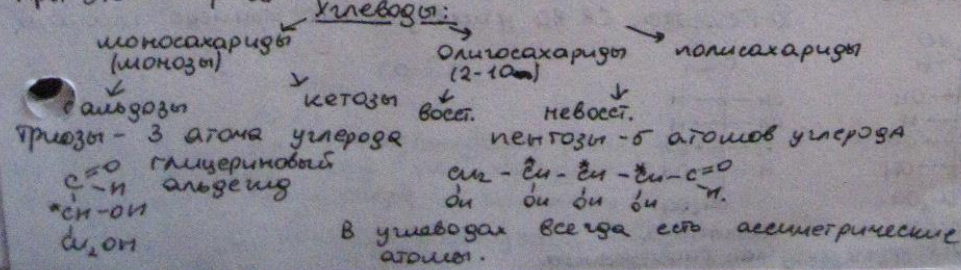 Углеводы:
моносахариды олигосахариды полисахариды
(монозы) (2-10)
альдозы кетозы восст. невосст.
Триозы - 3 атома углерода пентозы - 5 атомов углерода
C=O глицериновый
-H альдегид CH2 - *CH - *CH - *CH - C=O
*CH-OH OH OH OH OH H.
CH2OH В углеводах всегда есть ассиметрические
атомы.